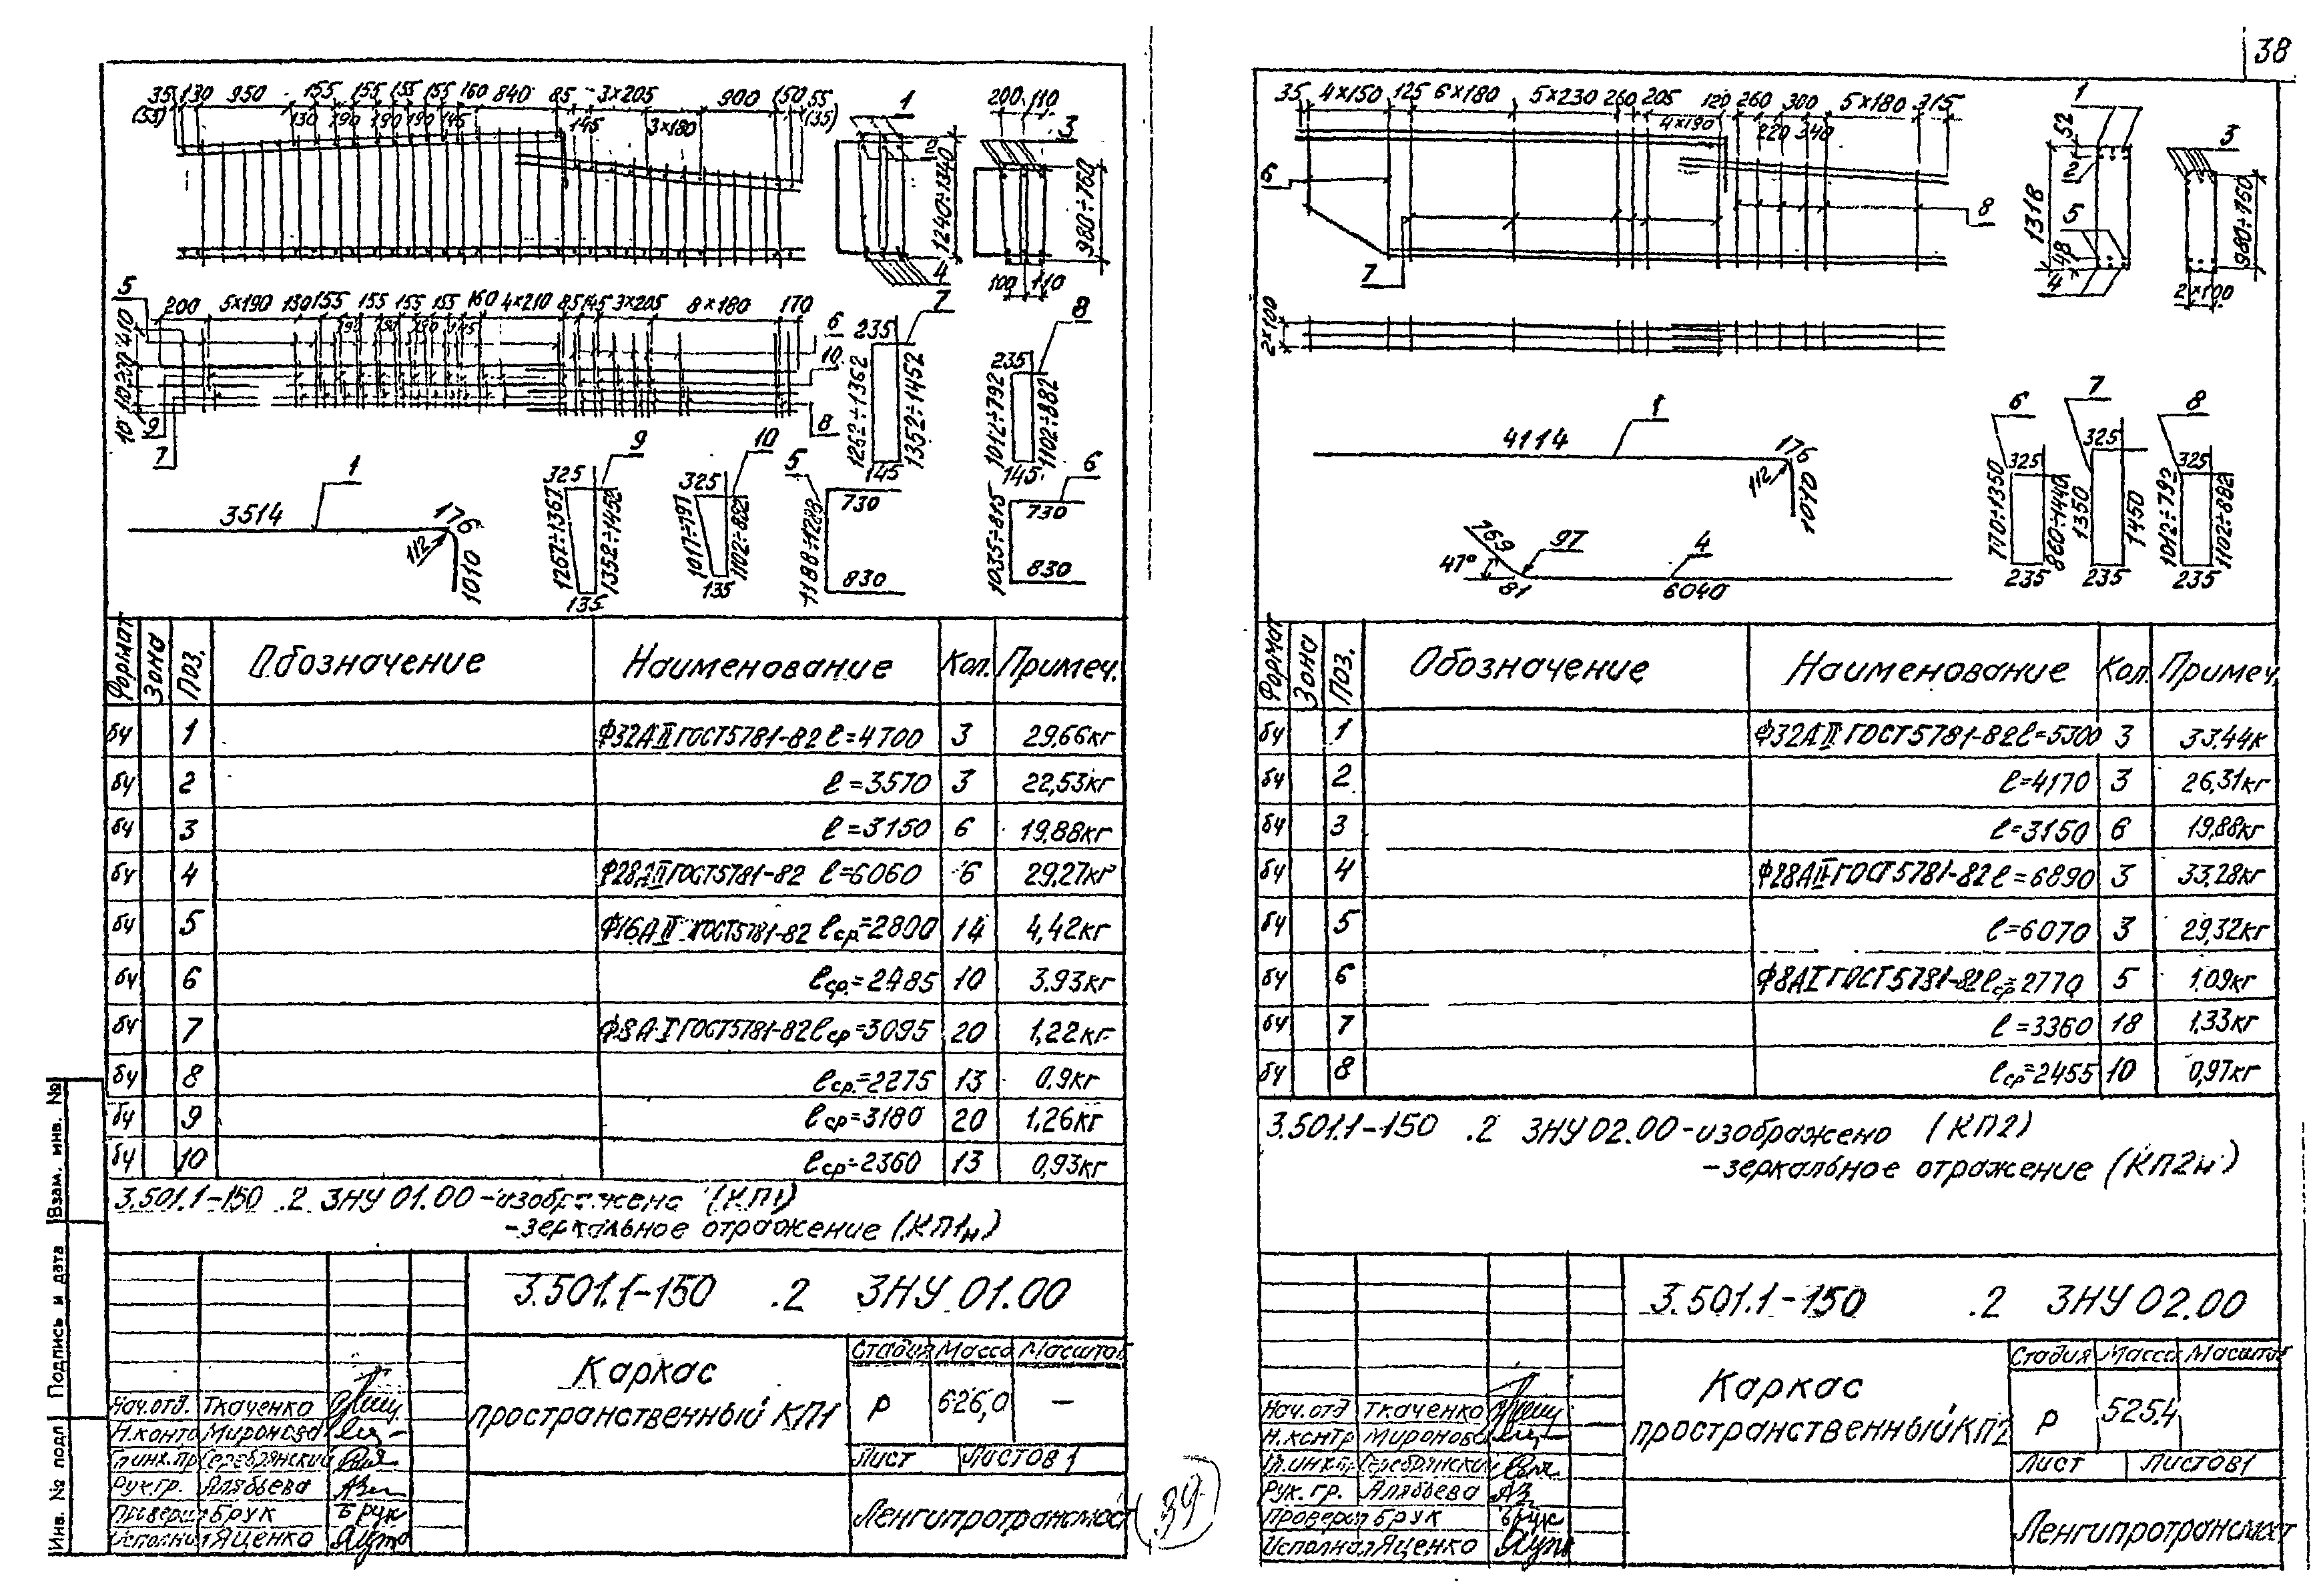 38
35 130 950 155 155 155 155 160 840 85 3×205 900 150 55
(33) 130 190 190 190 145 145 3×180 (35)
1
200 110
3
2
1240÷1340
980÷760
4
100 110
5
200 5×190 130 155 155 155 155 160 4×210 85 145 3×205 8×180 170
6
10
8
9
7
7
235
1262÷1362
1352÷1452
145
8
235
1012÷792
1102÷882
145
1
3514
176
112
1010
9
325
1267÷1367
1352÷1452
135
10
325
1017÷797
1102÷882
135
5
730
1188÷1288
830
6
730
1035÷815
830
Формат Зона Поз. Обозначение Наименование Кол. Примеч.
бч 1 Ф32АII ГОСТ5781-82 ℓ=4700 3 29,66кг
бч 2 ℓ=3570 3 22,53кг
бч 3 ℓ=3150 6 19,88кг
бч 4 Ф28АII ГОСТ5781-82 ℓ=6060 6 29,27кг
бч 5 Ф16АII ГОСТ5781-82 ℓср.=2800 14 4,42кг
бч 6 ℓср.=2485 10 3,93кг
бч 7 Ф8А-I ГОСТ5781-82 ℓср=3095 20 1,22кг
бч 8 ℓср.=2275 13 0.9кг
бч 9 ℓср=3180 20 1,26кг
бч 10 ℓср=2360 13 0,93кг
3.501.1-150 .2 3НУ 01.00 -изображено (КП1)
-зеркальное отражение (КП1н)
3.501.1-150 .2 3НУ 01.00
Каркас
пространственный КП1
Стадия Масса Масштаб
Р 626,0 —
Лист Листов 1
Ленгипротрансмост
Нач.отд. Ткаченко
Н.контр Миронова
Гл.инж.пр Серебрянский
Рук.гр. Алябьева
Проверил Брук
Исполнил Яценко
Инв. № подл Подпись и дата Взам. инв. №
39
35 4×150 125 6×180 5×230 260 205 120 260 300 5×180 315
4×190 220 340
6
7
8
1
52
2
1318
5
48
4
3
980÷760
2×100
2×100
1
4114
176
112
1010
769
97
47°
81
4
6040
6
325
770÷1350
860÷1440
235
7
325
1350
1450
235
8
325
1012÷792
1102÷882
235
Формат Зона Поз. Обозначение Наименование Кол. Примеч.
бч 1 Ф32АII ГОСТ5781-82 ℓ=5300 3 33,44к
бч 2 ℓ=4170 3 26,31кг
бч 3 ℓ=3150 6 19,88кг
бч 4 Ф28АII ГОСТ5781-82 ℓ=6890 3 33,28кг
бч 5 ℓ=6070 3 29,32кг
бч 6 Ф8АI ГОСТ5781-82 ℓср=2770 5 1,09кг
бч 7 ℓ=3360 18 1,33кг
бч 8 ℓср=2455 10 0,97кг
3.501.1-150 .2 3НУ 02.00 -изображено (КП2)
-зеркальное отражение (КП2н)
3.501.1-150 .2 3НУ 02.00
Каркас
пространственный КП2
Стадия Масса Масштаб
Р 525.4
Лист Листов 1
Ленгипротрансмост
Нач.отд Ткаченко
Н.контр Миронова
Гл.инж.пр Серебрянский
Рук. гр. Алябьева
Проверил Брук
Исполнил Яценко